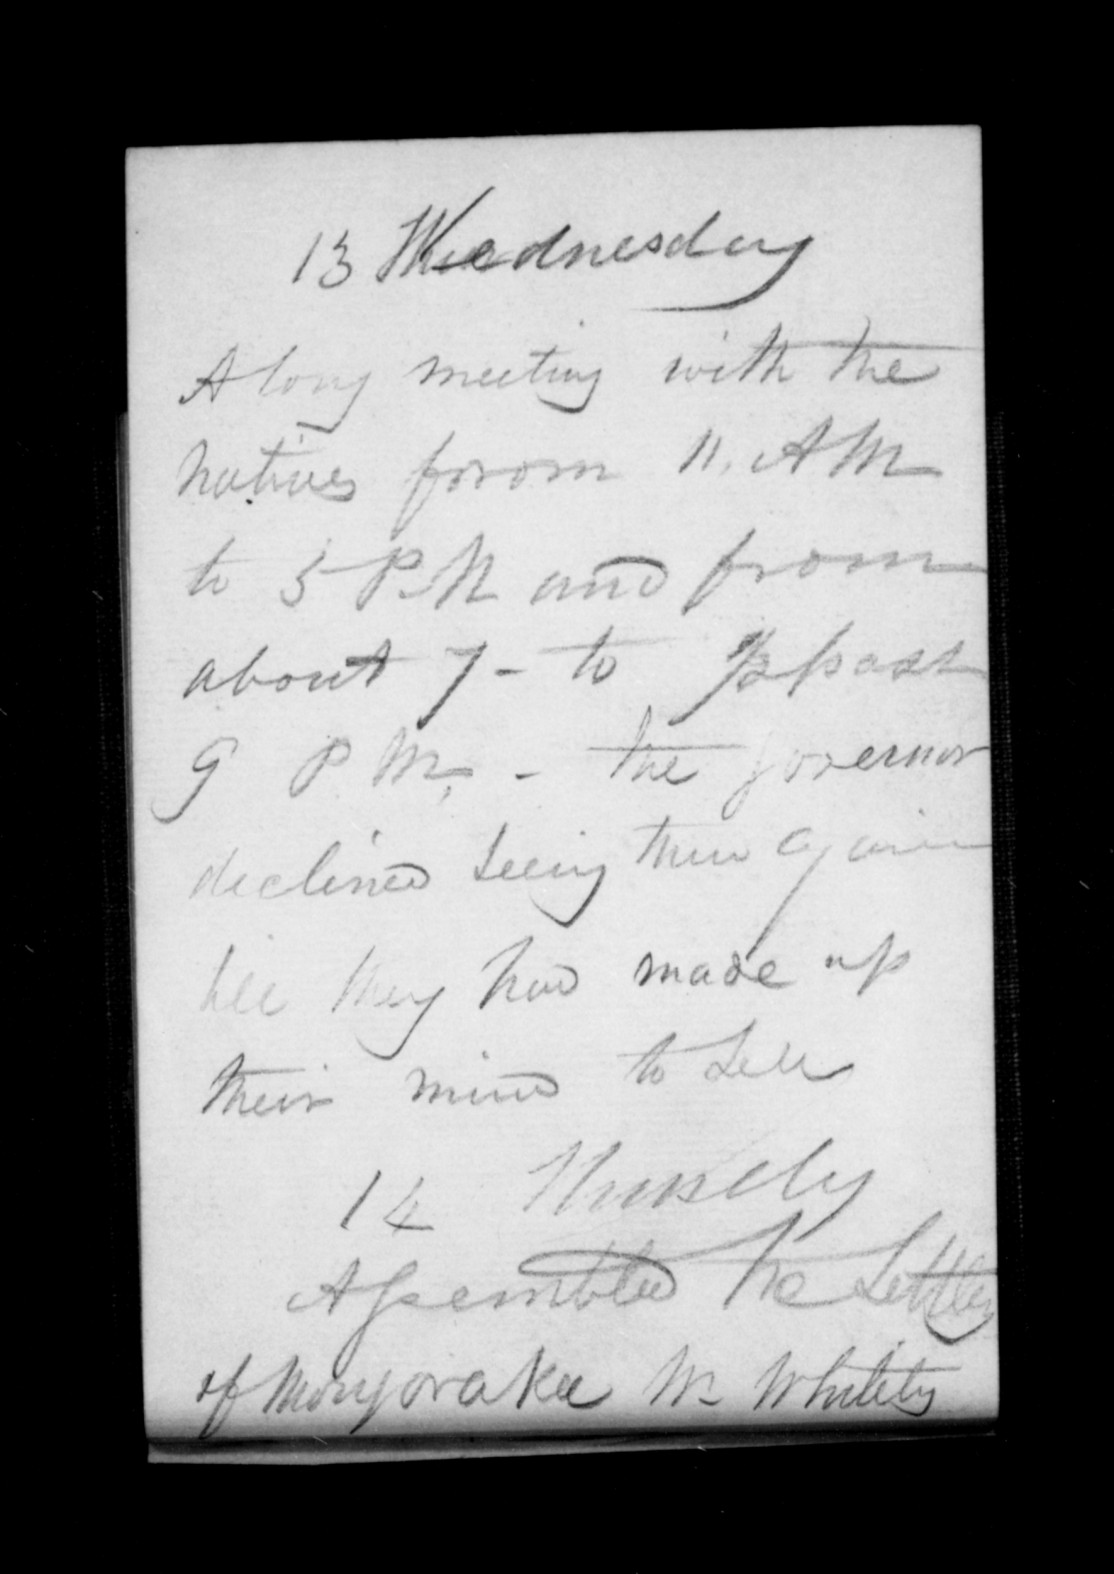 13 Wednesday
A long meeting with the
natives from 11. AM
to 5 PM and from
about 7 - to ½ past
9 P.M, - the governor
declined seeing them again
till they had made up
their mind to sell
14 Thursdy
Assembled the Settlers
of Mongoraka Mr Whitely